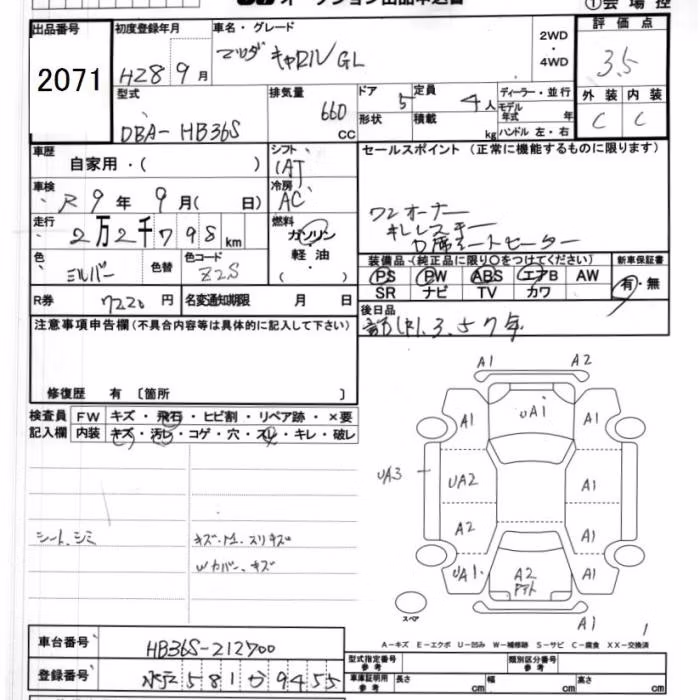 オークション出品申込書
①会場控
出品番号 2071
初度登録年月 H28 9月
車名・グレード マツダ キャロル GL
2WD・4WD
評価点 3.5
外装 C 内装 C
型式 DBA-HB36S
排気量 660 cc
ドア 5
形状
定員 4人
積載 kg
ディーラー・並行
モデル年式 年
ハンドル 左・右
車歴 自家用・( )
シフト
冷房 AC
車検 R 9年 9月( 日)
走行 2万2千798km
燃料 ガソリン・軽油・( )
色 シルバー 色替
色コード Z2S
R券 7220円
名変通知期限 月 日
セールスポイント (正常に機能するものに限ります)
ワンオーナー
キーレスキー
D席シートヒーター
装備品 (純正品に限り○をつけてください)
PS PW ABS エアB AW
SR ナビ TV カワ
新車保証書 有・無
後日品
注意事項申告欄 (不具合内容等は具体的に記入して下さい)
修復歴 有 〔箇所 〕
検査員記入欄
FW キズ・飛石・ヒビ割・リペア跡・×要
内装 キズ・汚レ・コゲ・穴・スレ・キレ・破レ
シート、シミ
A1 A2
UA1
A1 A1
UA3 UA2 A1
A2 A1
UA1 A2 A1
スペア A1
1
A-キズ E-エクボ U-凹み W-補修跡 S-サビ C-腐食 XX-交換済
車台番号 HB36S-212700
登録番号 581 9455
型式指定番号 参考 類別区分番号 参考
車庫証明用 参考 長さ cm 幅 cm 高さ cm